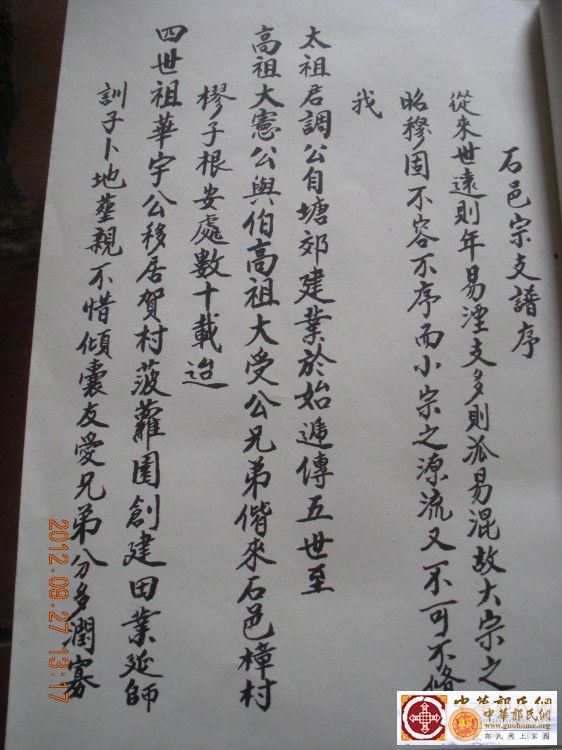 石邑宗支譜序
從來世遠則年易湮支多則派易混故大宗之
昭穆固不容不序而小宗之源流又不可不脩
我
太祖君調公自塘郊建業於始遞傳五世至
高祖大憲公與伯高祖大受公兄弟偕來石邑樟村
樛子根安處數十載迨
四世祖華宇公移居賀村菠蘿園創建田業延師
訓子卜地塟親不惜傾囊友愛兄弟分多潤寡
2012.09.27 13:17
中華郭氏網
www.guohome.org
郭氏網上家園